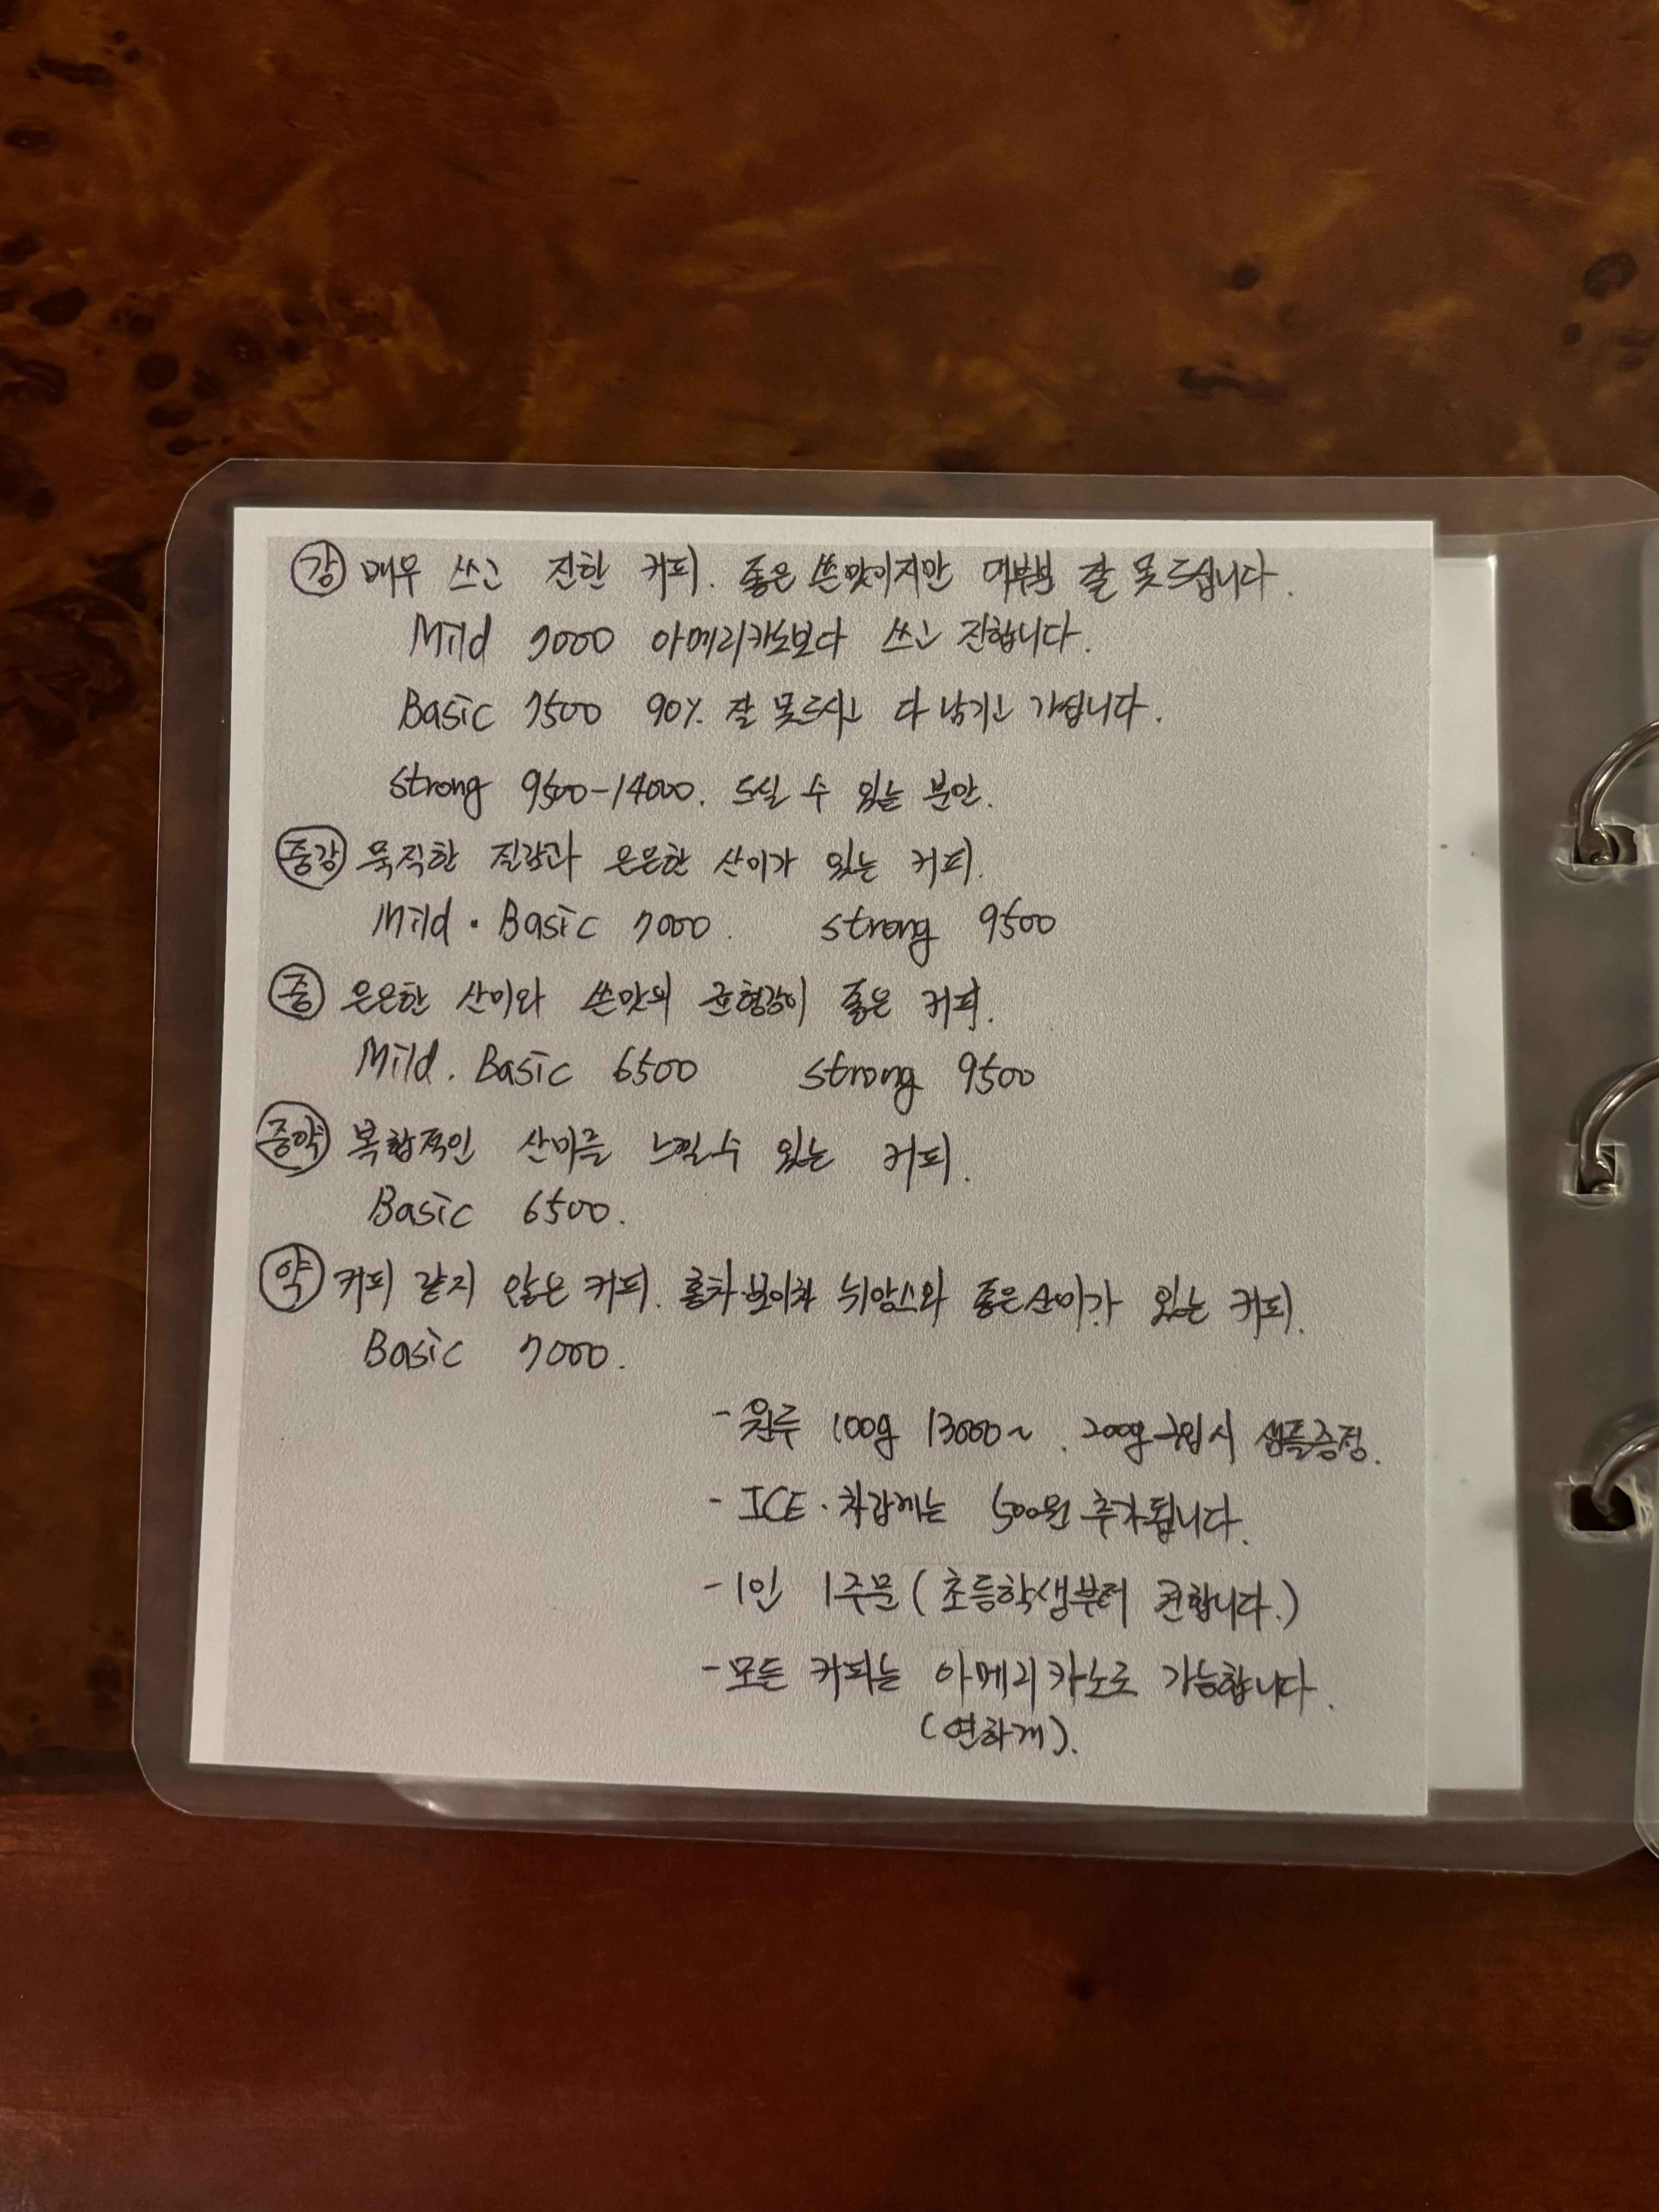 강 매우 쓰고 진한 커피. 좋은 쓴맛이지만 대부분 잘 못드십니다.
Mild 7000 아메리카노보다 쓰고 진합니다.
Basic 7500 90% 잘 못드시고 다 남기고 가십니다.
strong 9500-14000. 드실 수 있는 분만.
중강 묵직한 질감과 은은한 산미가 있는 커피.
Mild · Basic 7000. strong 9500
중 은은한 산미와 쓴맛의 균형감이 좋은 커피.
Mild. Basic 6500 strong 9500
중약 복합적인 산미를 느낄 수 있는 커피.
Basic 6500.
약 커피 같지 않은 커피. 홍차·보이차 뉘앙스와 좋은 산미가 있는 커피.
Basic 7000.
- 원두 100g 13000~. 200g 구입시 샘플증정.
- ICE · 차갑게는 500원 추가됩니다.
- 1인 1주문 (초등학생부터 권합니다.)
- 모든 커피는 아메리카노로 가능합니다.
(연하게).